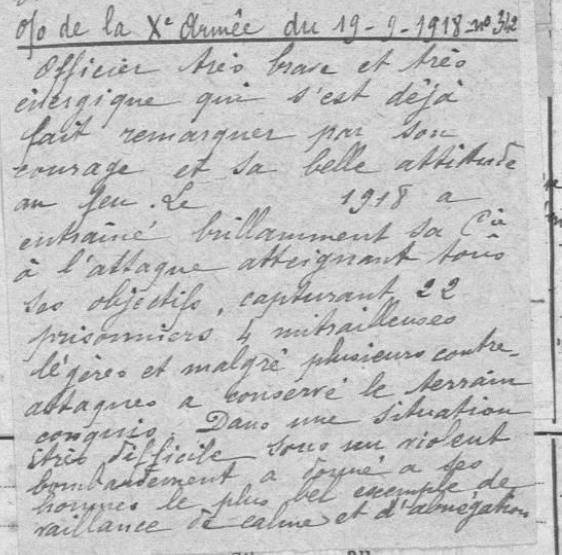 o/o de la Xe Armée du 19-9-1918 no 342
Officier très brave et très
énergique qui s'est déjà
fait remarquer par son
courage et sa belle attitude
au feu. Le 1918 a
entraîné brillamment sa Cie
à l'attaque atteignant tous
ses objectifs, capturant 22
prisonniers 4 mitrailleuses
légères et malgré plusieurs contre-
attaques a conservé le terrain
conquis. Dans une situation
très difficile sous un violent
bombardement a donné a ses
hommes le plus bel exemple de
vaillance de calme et d'abnégation